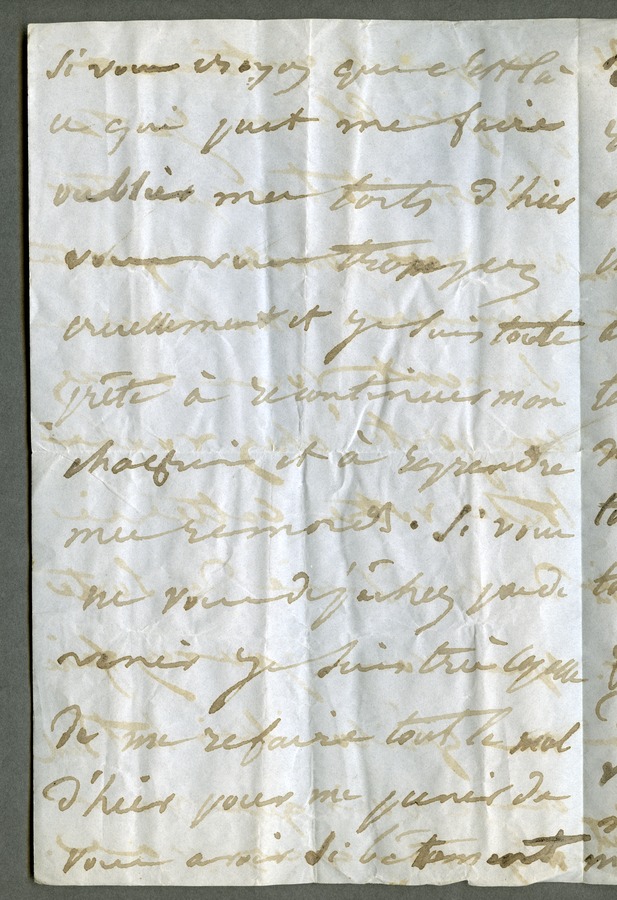 Si vous croyez que c'est là
ce qui peut me faire
oublier mes torts d'hier
vous vous trompez
cruellement et je suis toute
prête à recontinuer mon
chagrin et à reprendre
mes remords. Si vous
ne vous dépêchez pas de
venir je suis très capable
de me refaire tout le mal
d'hier pour me punir de
vous avoir si bêtement